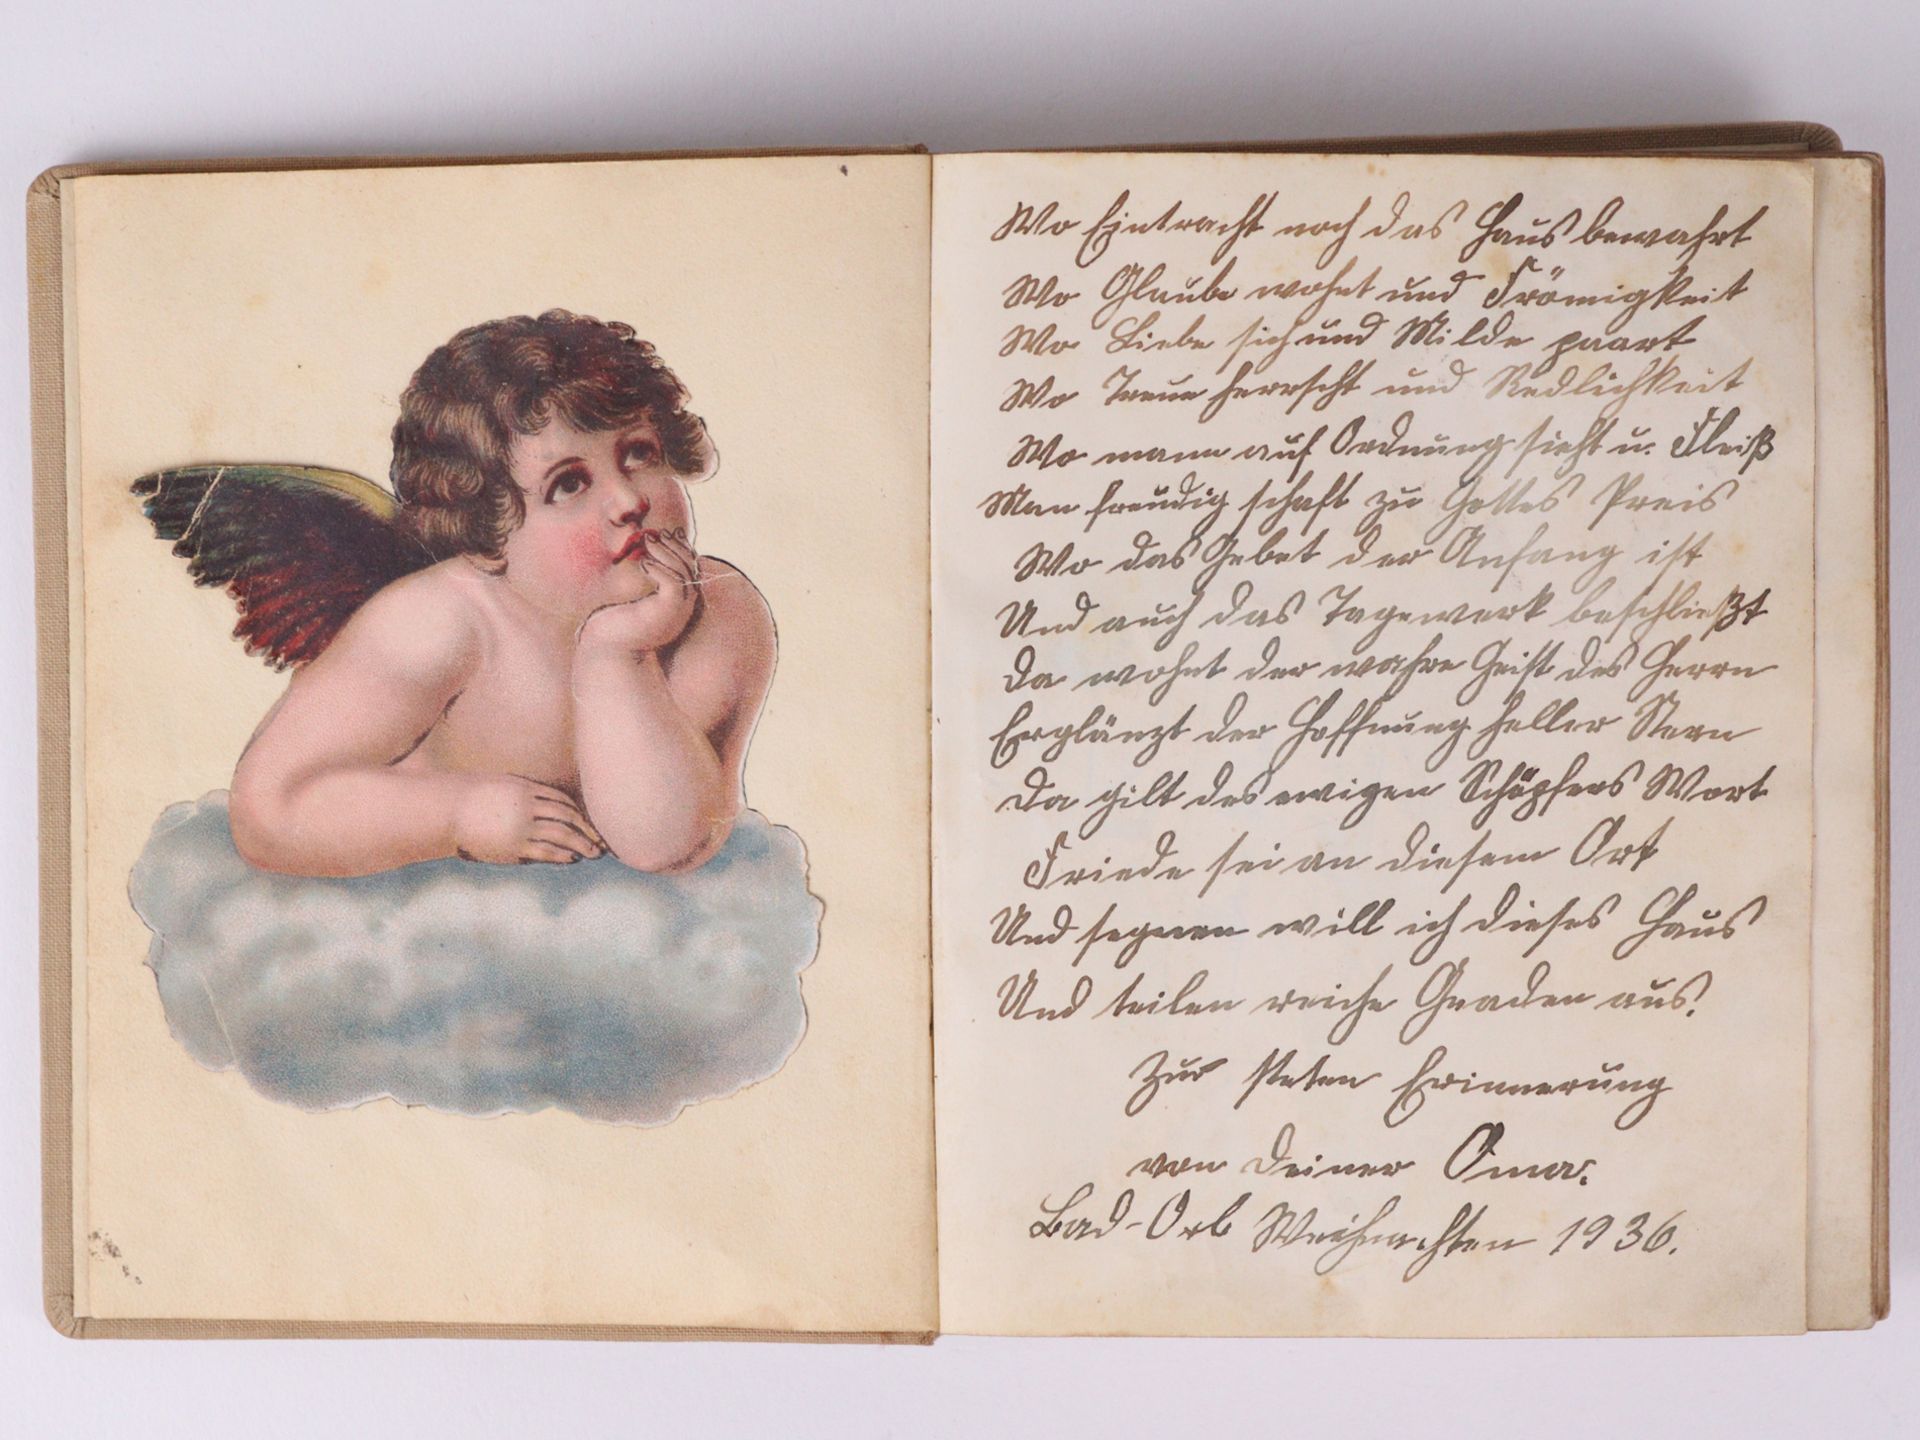 Wo Eintracht noch das Haus bewahrt
Wo Glaube wohnt und Frömigkeit
Wo Liebe sich und Milde paart
Wo Treue herrscht und Redlichkeit
Wo mann auf Ordnung sieht u. Fleiß
Man freudig schaft zu Gottes Preis
Wo das Gebet der Anfang ist
Und auch das Tagewerk beschließt
Da wohnt der wahre Geist des Herrn
Erglänzt der Hoffnung heller Stern
Da gilt des ewigen Schöpfers Wort
Friede sei an diesem Ort
Und segnen will ich dieses Haus
Und teilen reiche Gnaden aus.
Zur steten Erinnerung
von Deiner Oma.
Bad-Orb Weihnachten 1936.